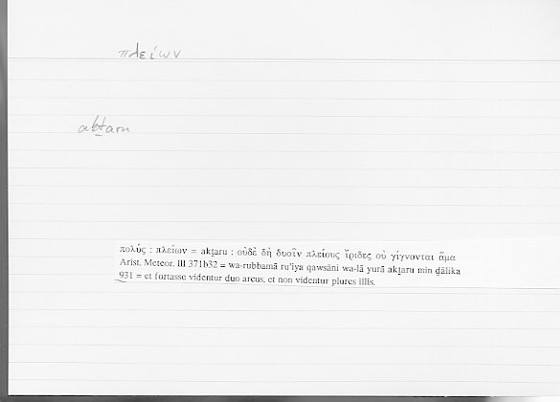 πλείων
akṯaru
πολύς : πλείων = akṯaru : οὐδὲ δὴ δυοῖν πλείους ἴριδες οὐ γίγνονται ἅμα
Arist. Meteor. III 371b32 = wa-rubbamā ru’iya qawsāni wa-lā yurā akṯaru min ḏālika
931 = et fortasse videntur duo arcus, et non videntur plures illis.